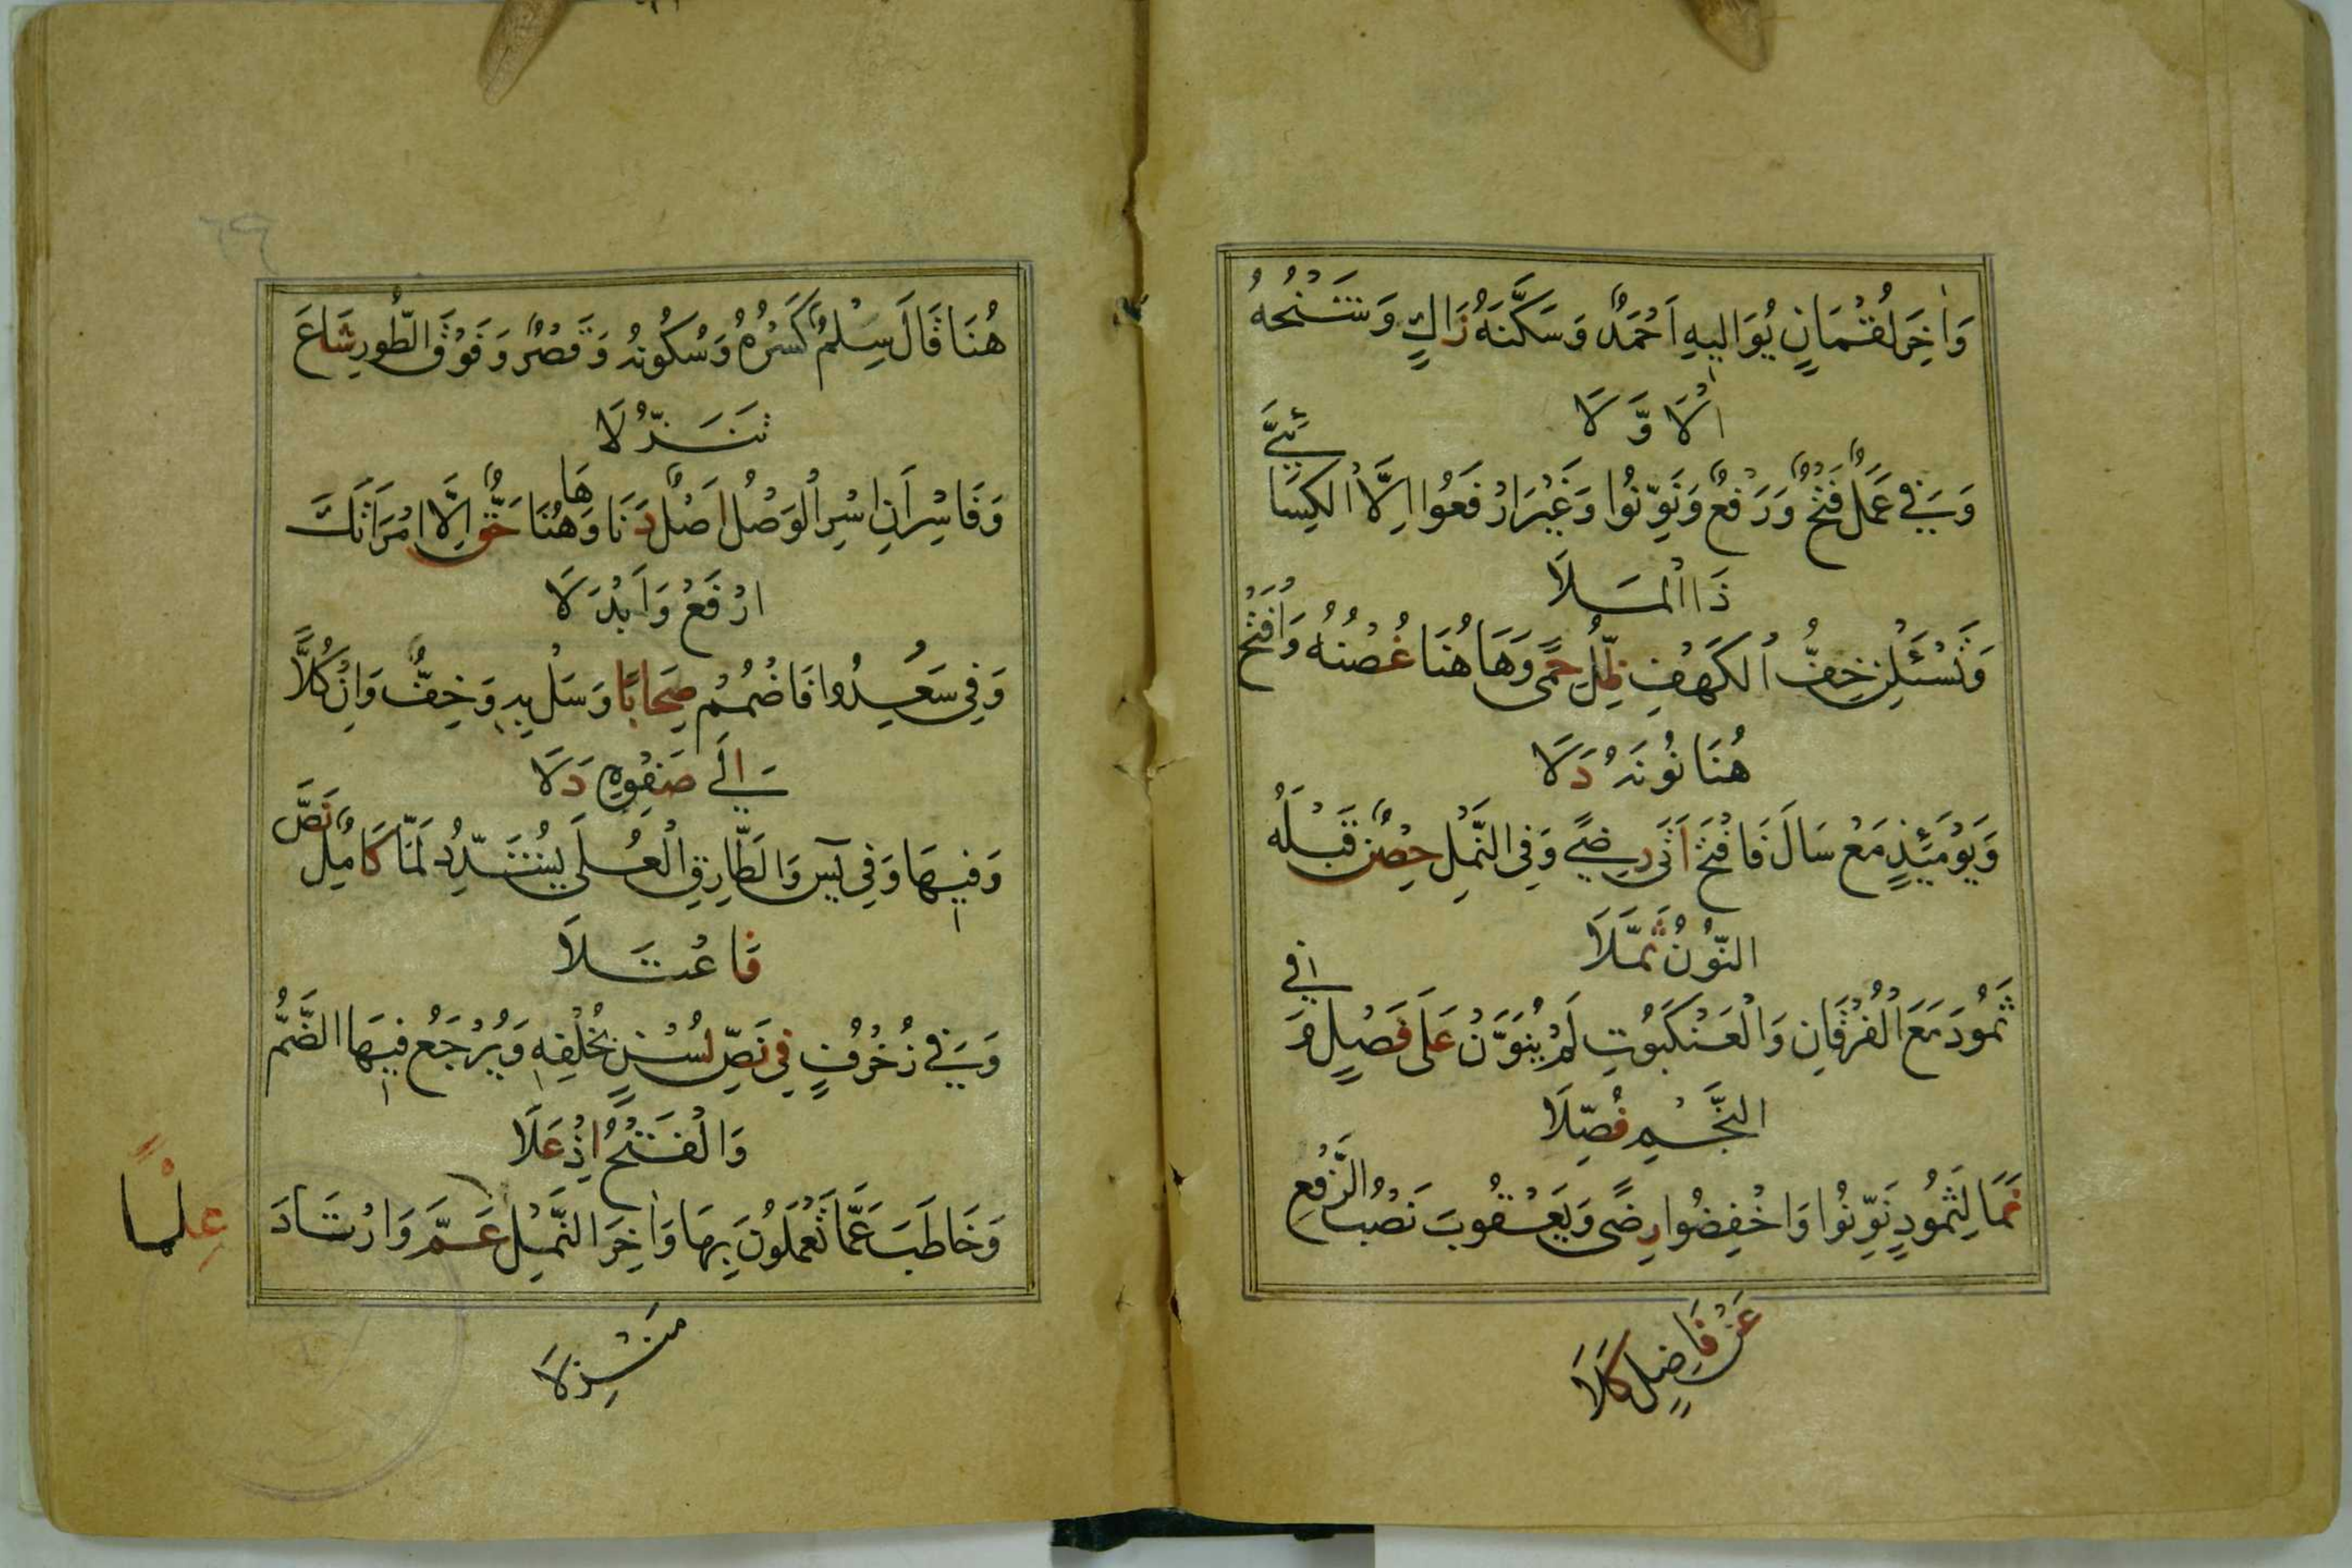 وَاٰخِرَ لُقْمَانٍ يُوَالِيهِ اَحْمَدٌ وَسَكَّنَهُ زَاكٍ وَشَيْخُهُ
الْاَوَّلَا
وَفِي عَمَلٌ فَتْحٌ وَرَفْعٌ وَنَوِّنُوا وَغَيْرَ ارْفَعُوا اِلَّا الْكِسَائِيَّ
ذَا الْمَلَا
وَتَسْئَلْنِ خِفُّ الْكَهْفِ ظِلُّ حِمًى وَهَاهُنَا غُصْنُهُ وَافْتَحْ
هُنَا نُونَهُ دَلَا
وَيَوْمَئِذٍ مَعْ سَالَ فَافْتَحْ اَتٰى رِضًى وَفِي النَّمْلِ حِصْنٌ قَبْلَهُ
النُّونُ ثُمَّلَا
ثَمُودَ مَعَ الْفُرْقَانِ وَالْعَنْكَبُوتِ لَمْ يُنَوَّنْ عَلَى فَصْلٍ وَفِي
النَّجْمِ فُصِّلَا
نَمَا لِثَمُودٍ نَوِّنُوا وَاخْفِضُوا رِضًى وَيَعْقُوبَ نَصْبُ الرَّفْعِ
عَنْ فَاضِلٍ كَلَا
هُنَا قَالَ سِلْمٌ كَسْرُهُ وَسُكُونُهُ وَقَصْرٌ وَفَوْقَ الطُّورِ شَاعَ
تَنَزُّلَا
وَفَاسْرِ اَنِ اسْرِ الْوَصْلُ اَصْلٌ دَنَا وَهَاهُنَا حَقٌّ اِلَّا امْرَاَتَكَ
ارْفَعْ وَاَبْدِلَا
وَفِي سَعِدُوا فَاضْمُمْ صِحَابًا وَسَلْ بِهِ وَخِفُّ وَاِنْ كُلًّا
اِلَى صَفْوِهِ دَلَا
وَفِيهَا وَفِي يٰسٓ وَالطَّارِقِ الْعُلَى يُشَدِّدُ لَمَّا كَامِلٌ نَصَّ
فَاعْتَلَا
وَفِي زُخْرُفٍ فِي نَصِّ لُسْنٍ بِخُلْفِهِ وَيُرْجَعُ فِيهَا الضَّمُّ
وَالْفَتْحُ اِذْ عَلَا
وَخَاطَبَ عَمَّا تَعْمَلُونَ بِهَا وَاٰخِرَ النَّمْلِ عَمَّ وَارْتَادَ
مَنْزِلَا
عِلْمًا